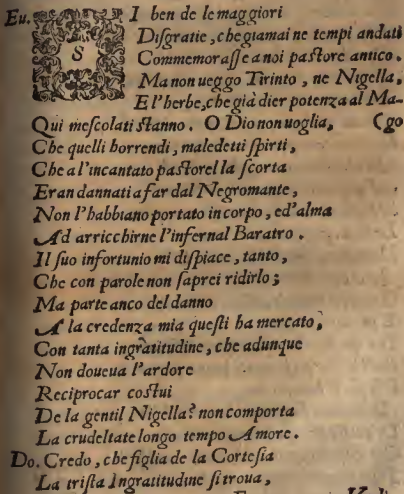 Eu. SI ben de le maggiori
Diſgratie, che giamai ne tempi andati
Commemoraſſe a noi paſtore antico.
Ma non ueggo Tirinto, ne Nigella,
E l'herbe, che già dier potenza al Ma-
Qui meſcolati ſtanno. O Dio non uoglia, (go
Che quelli horrendi, maledetti ſpirti,
Che a l'incantato paſtorel la ſcorta
Eran dannati a far dal Negromante,
Non l'habbiano portato in corpo, ed'alma
Ad arricchirne l'infernal Baratro.
Il ſuo infortunio mi diſpiace, tanto,
Che con parole non ſaprei ridirlo;
Ma parte anco del danno
A la credenza mia queſti ha mercato,
Con tanta ingratitudine, che adunque
Non doueua l'ardore
Reciprocar coſtui
De la gentil Nigella? non comporta
La crudeltate longo tempo Amore.
Do. Credo, che figlia de la Corteſia
La triſta Ingratitudine ſi troua,